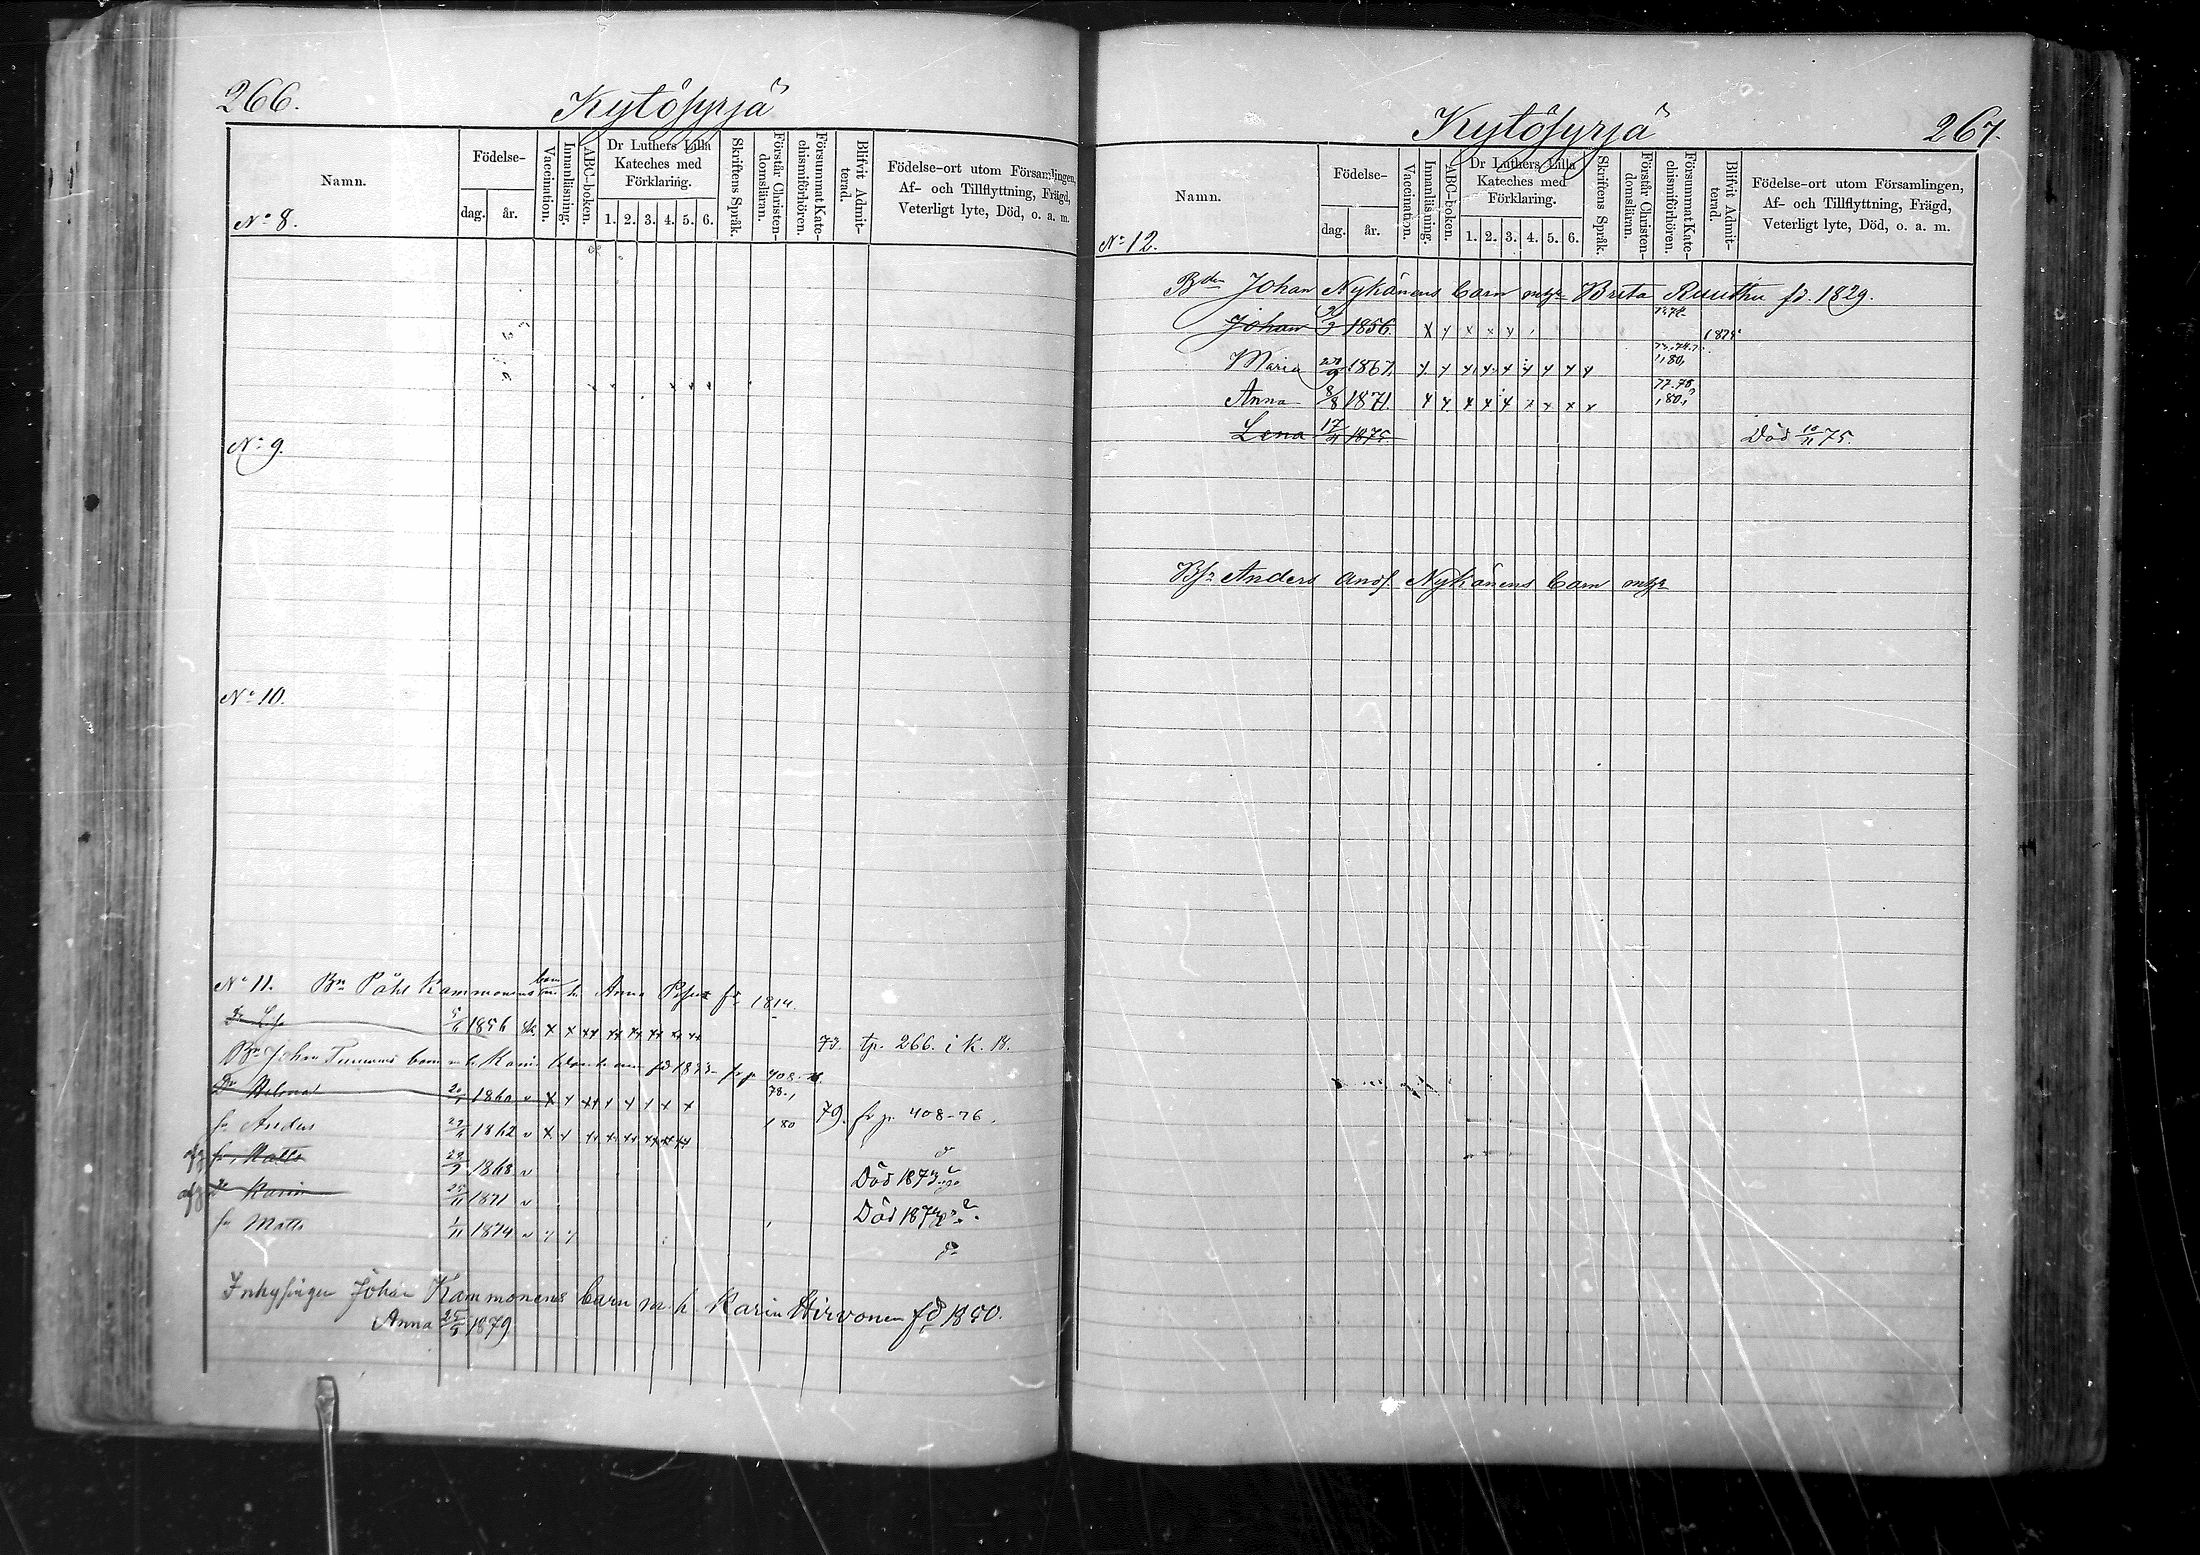 266.
Kytösyrjä
Namn.
Födelse-
dag.
år.
Vaccination.
Innanläsning.
ABC-boken.
Dr Luthers Lilla
Kateches med
Förklaring.
1. 2. 3. 4. 5. 6.
Skriftens Språk.
Förstår Christen-
domsläran.
Försummat Kate-
chismiförhören.
Blifvit Admit-
terad.
Födelse-ort utom Församlingen,
Af- och Tillflyttning, Frägd,
Veterligt lyte, Död, o. a. m.
No 8.
No 9.
No 10.
No 11. Bn Påhl Kammonens barn m. h. Anna fd 1814.
1856 x x xx xx xx xx xx xx
73. tp. 266. i K. B.
Bn Johan barn m. h. Karin fd 1833 fr p 408-
Dr Helena 20/1 1860 v x x xx x x x x x 78.,
79. fr p. 408-76.
sn Anders 1862 v x x xx xx xx xx xx xx ,80
sn Matts 1868 v Död 1873
dr Karin 25/11 1871 v Död 187
sn Matts 1/11 1874 v
Inhysingen Johan Kammonens barn m. h. Karin Hirvonen fd 1850.
Anna 25/5 1879
Kytösyrjä
267.
Namn.
Födelse-
dag.
år.
Vaccination.
Innanläsning.
ABC-boken.
Dr Luthers Lilla
Kateches med
Förklaring.
1. 2. 3. 4. 5. 6.
Skriftens Språk.
Förstår Christen-
domsläran.
Försummat Kate-
chismiförhören.
Blifvit Admit-
terad.
Födelse-ort utom Församlingen,
Af- och Tillflyttning, Frägd,
Veterligt lyte, Död, o. a. m.
No 12.
Bden Johan Nykänens barn m h Brita Ruuthu fd. 1829.
Johan 1856. x x x x x 1875
Maria 1867. x x x x x x x x x 73.,74.,
,80,
Anna 8/8 1871. x x x x x x x x x 77.78,
,80,
Lena 17/4 1875. Död 10/11 75.
Bsn Anders And. Nykänens barn m h